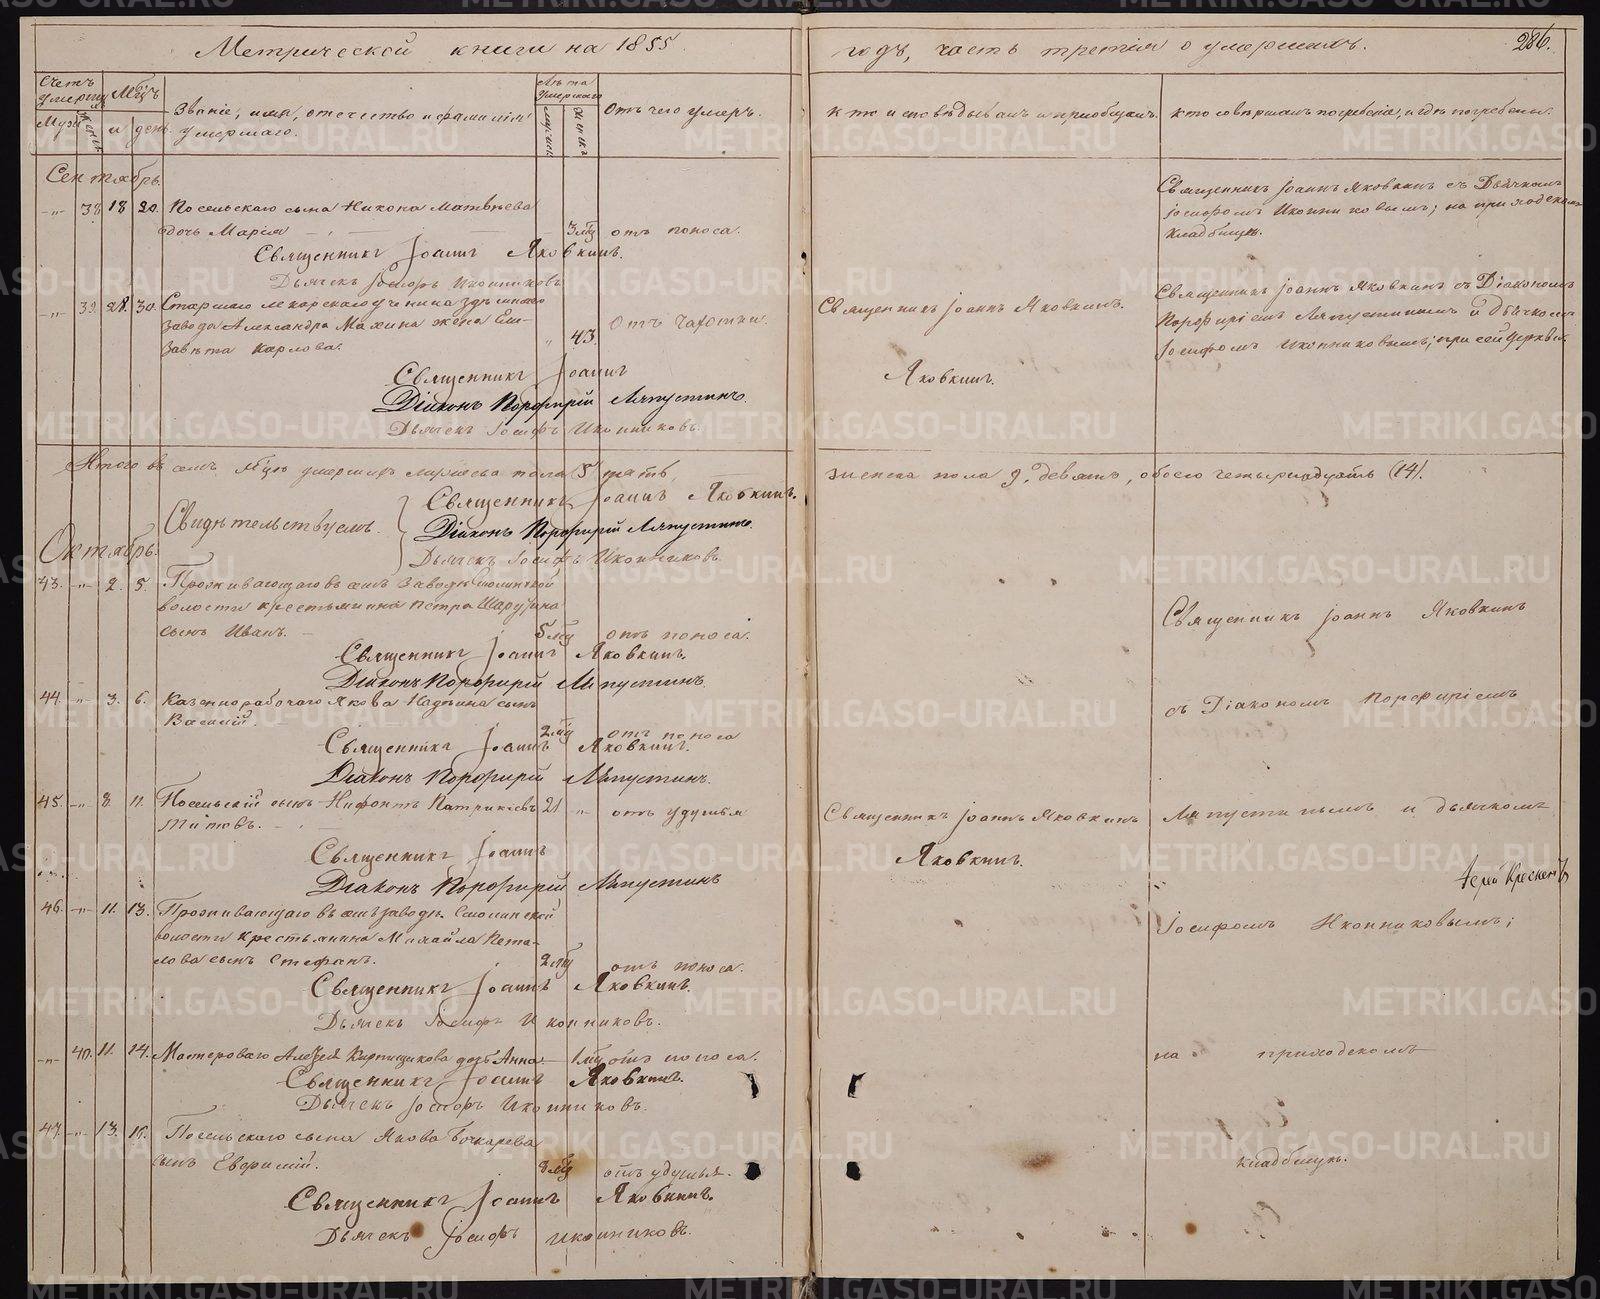 Метрической книги на 1855
годъ, часть третія о умершихъ.
286.
Счетъ умершихъ
Мужс.
Женс.
Мцъ и день.
Званіе, имя, отечество и фамилія умершаго.
Лѣта умершаго
Отъ чего умеръ.
Кто исповѣдывалъ и пріобщалъ.
Кто совершалъ погребеніе, и гдѣ погребены.
Сентябрь.
-"- 38. 18 20. Посельскаго сына Никона Матвѣева
дочь Марія 3 мц отъ поноса.
Священникъ Іоаннъ Яковкинъ съ Дьячкомъ
Іосифомъ Иконниковымъ; на приходскомъ
кладбищѣ.
Священникъ Іоаннъ Яковкинъ.
Дьячекъ Іосифъ Иконниковъ
-"- 39. 28. 30. Старшаго лекарскаго ученика здѣшняго
завода Александра Махина жена Ели-
завета Карлова. " 43. Отъ чахотки.
Священникъ Іоаннъ Яковкинъ.
Священникъ Іоаннъ Яковкинъ съ Діакономъ
Порфиріемъ Ляпустинымъ и дьячкомъ
Іосифомъ Иконниковымъ; при сей церкви.
Священникъ Іоаннъ Яковкинъ.
Діаконъ Порфирій Ляпустинъ.
Дьячекъ Іосифъ Иконниковъ.
Итого въ семъ мцѣ умершихъ мужеска пола 5 пять,
женска пола 9. девять, обоего четырнадцать (14).
Свидѣтельствуемъ.
Священникъ Іоаннъ Яковкинъ.
Діаконъ Порфирій Ляпустинъ.
Дьячекъ Іосифъ Иконниковъ.
Октябрь.
43. -"- 2. 5. Проживающаго въ семъ заводѣ Смолинской
волости крестьянина Петра
сынъ Иванъ. 5 мц отъ поноса.
Священникъ Іоаннъ Яковкинъ.
Діаконъ Порфирій Ляпустинъ.
Священникъ Іоаннъ Яковкинъ
44. -"- 3. 6. Казеннорабочаго Якова сынъ
Василій. 2 мц отъ поноса
Священникъ Іоаннъ Яковкинъ.
Діаконъ Порфирій Ляпустинъ.
съ Діакономъ Порфиріемъ
45. -"- 8. 11. Посельскій сынъ Нифонтъ Патрикіевъ 21 -"- отъ удушья
Титовъ.
Священникъ Іоаннъ Яковкинъ
Ляпустинымъ и дьячкомъ
Священникъ Іоаннъ Яковкинъ.
Діаконъ Порфирій Ляпустинъ
46. -"- 11. 13. Проживающаго въ семъ заводѣ Смолинской
волости крестьянина Михайла Пета-
лова сынъ Стефанъ. 2 мц отъ поноса.
Іосифомъ Иконниковымъ;
Священникъ Іоаннъ Яковкинъ.
Дьячекъ Іосифъ Иконниковъ.
-"- 40. 11. 14. Мастероваго Алексѣя Кирпищикова дочь Анна 1 мц отъ поноса.
на приходскомъ
Священникъ Іоаннъ Яковкинъ.
Дьячекъ Іосифъ Иконниковъ.
47. -"- 13. 15. Посельскаго сына Якова Бочкарева
сынъ Евфимій. 8 мц отъ удушья.
кладбищѣ.
Священникъ Іоаннъ Яковкинъ.
Дьячекъ Іосифъ Иконниковъ.
METRIKI.GASO-URAL.RU